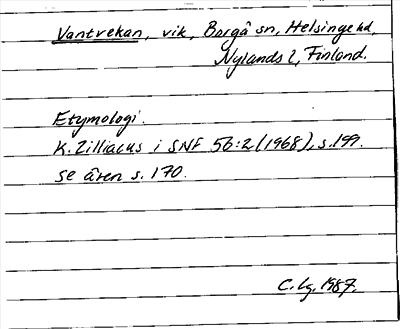 Vantvekan, vik, Borgå sn, Helsinge hd,
Nylands l, Finland.
Etymologi.
K. Zilliacus i SNF 56:2 (1968), s. 199.
se även s. 170.
C. Lg. 1987.